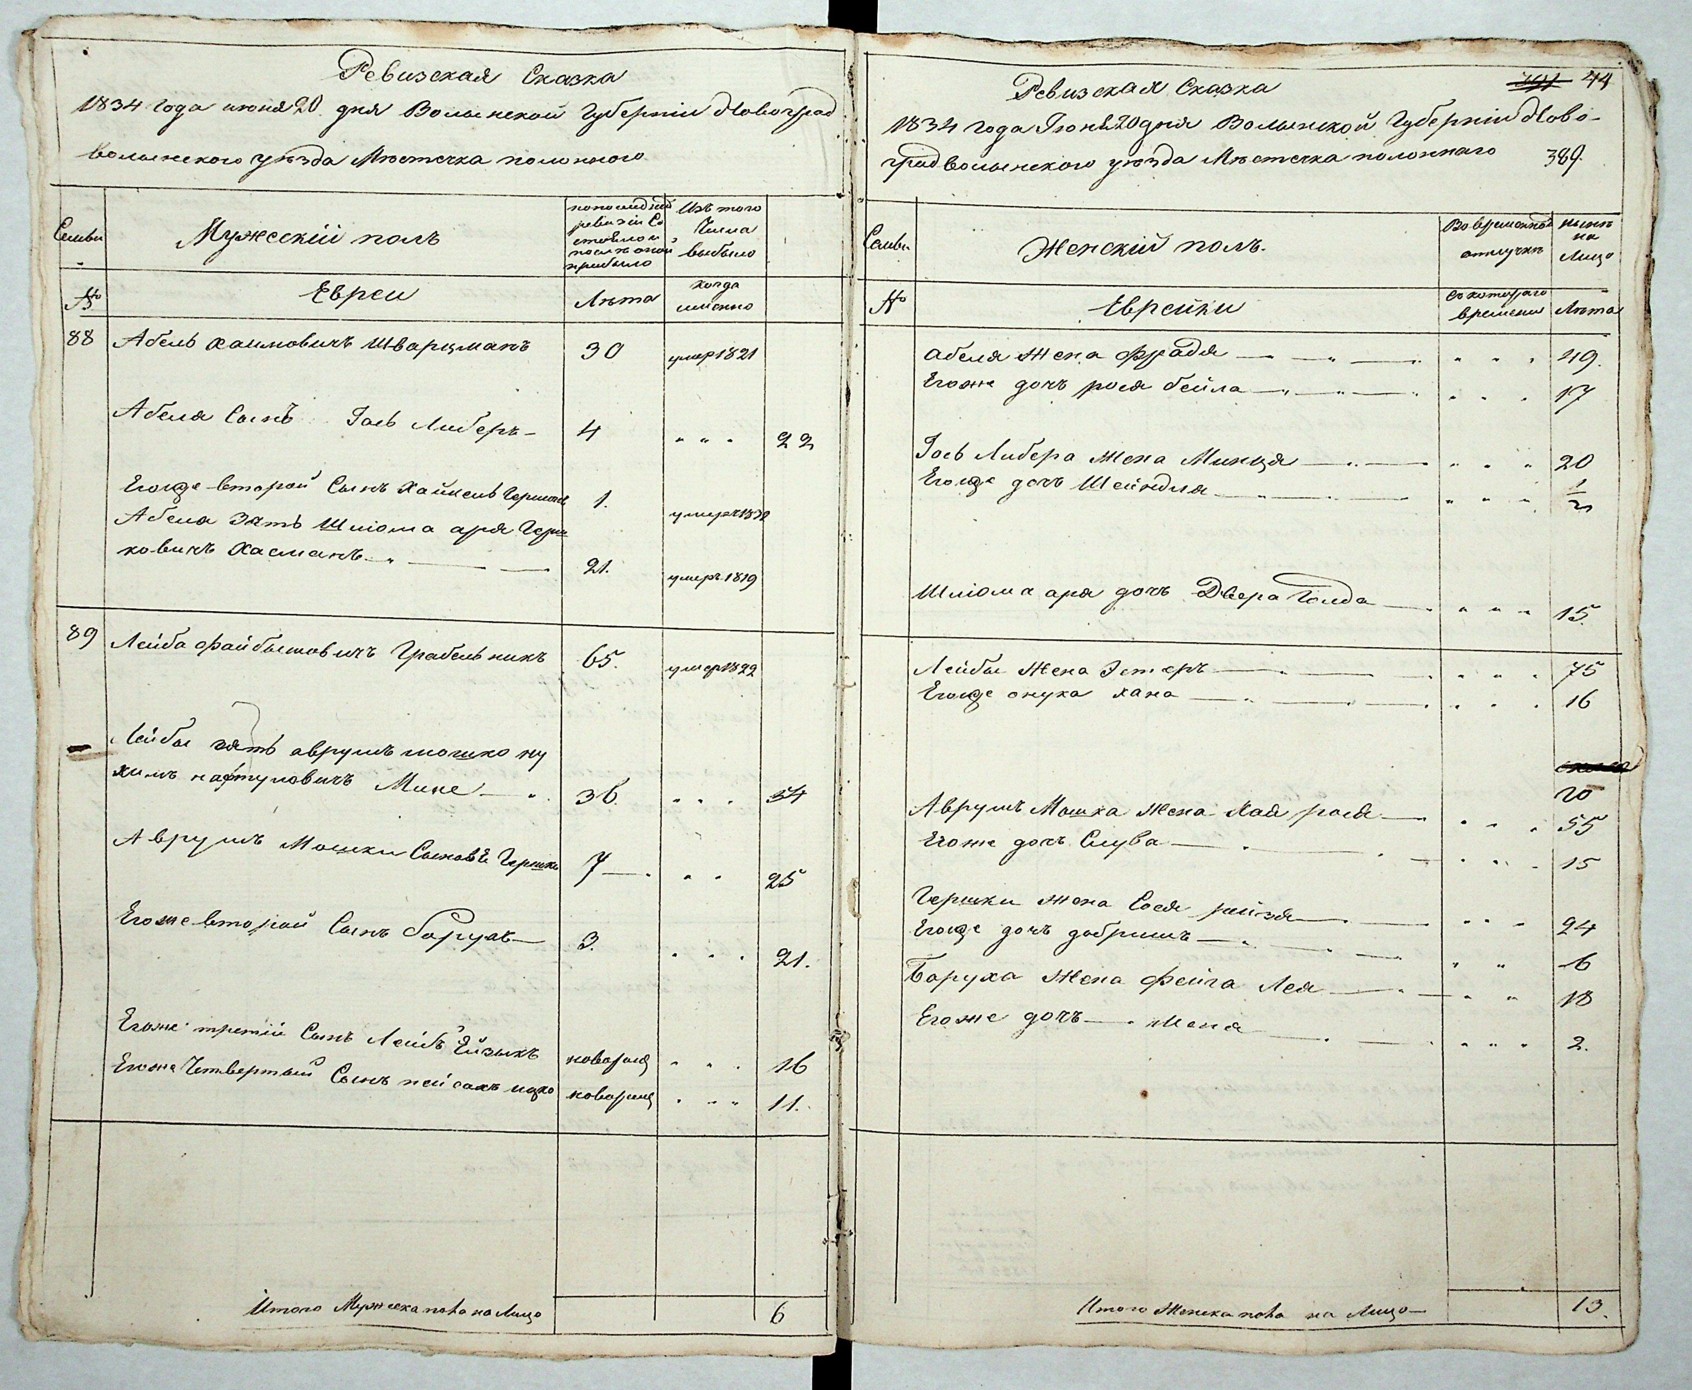 Ревизская Сказка
1834 года июня 20 дня Волынской Губернии Новоград
волынского уезда Местечка полонного
Семьи
Мужескiй полъ
по последней
ревизiи Со
стояло и
после оной
прибыло
Изъ того
Числа
выбыло
№
Евреи
Лета
когда
именно
88 Абель хаимовичъ шварцманъ 30 умеръ 1821
Абеля Сынъ Iось Либеръ 4 " " " 22
Егожъ второй Сынъ хаимъ Гершонъ 1. умеръ 1832
Абеля зять Шлiома аря Герш
ковичъ хасманъ 21. умеръ 1819
89 Лейба файбышовичъ Грабельникъ 65. умеръ 1822
Лейбы зять аврумъ мошко ну
химъ нафтуловичъ 36. " " " 54
Аврумъ Мошки Сыновъя Гершко 7 " " 25
Егоже второй Сынъ Барухъ 3. " " " 21.
Егоже третiй Сынъ Лейбъ Ейзыкъ новорож " " " 16
Егоже Четвертый Сынъ пейсахъ ицко новорож " " " 11.
Итого Мужеска пола на Лицо 6
44
Ревизская Сказка
1834 года Iюня 20 дня Волынской Губернiи Ново-
градволынского уезда Местечка полоннаго 389.
Семьи
Женскiй полъ.
Во временной
отлучке
ныне
на
Лицо
№
Еврейки
Съ котораго
времени
Лета
абеля жена фрадя " " " 49.
Егоже дочь рося бейла " " " 17
Iось Либера жена Минця " " " 20
Егоже дочь Шейндля " " " 1/2
Шлiома аря дочь Двера Голда " " " 15.
Лейбы жена Эстеръ " " " 75
Егоже онука хана " " " 16
20
Аврумъ Мошка жена хая рося " " " 55
Егоже дочь Слува " " " 15
Гершки жена Сося рейзя " " " 24
Егоже дочь добришъ " " 6
Баруха жена фейга Лея " " 18
Егоже дочь Меня " " " 2.
Итого Женска пола на Лицо 13.